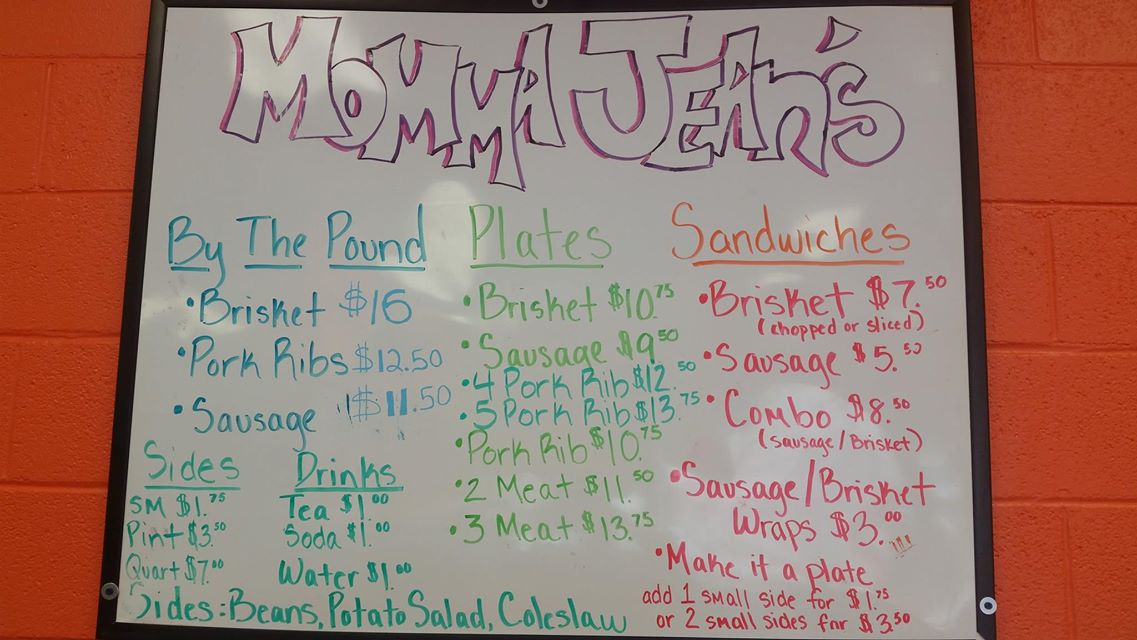 Momma Jean's
By The Pound
• Brisket $16
• Pork Ribs $12.50
• Sausage $11.50
Plates
• Brisket $10.75
• Sausage $9.50
• 4 Pork Rib $12.50
• 5 Pork Rib $13.75
• Pork Rib $10.75
• 2 Meat $11.50
• 3 Meat $13.75
Sandwiches
• Brisket $7.50
(chopped or sliced)
• Sausage $5.50
• Combo $8.50
(sausage/Brisket)
• Sausage/Brisket
Wraps $3.00
• Make it a plate
add 1 small side for $1.75
or 2 small sides for $3.50
Sides
SM $1.75
Pint $3.50
Quart $7.00
Drinks
Tea $1.00
Soda $1.00
Water $1.00
Sides: Beans, Potato Salad, Coleslaw